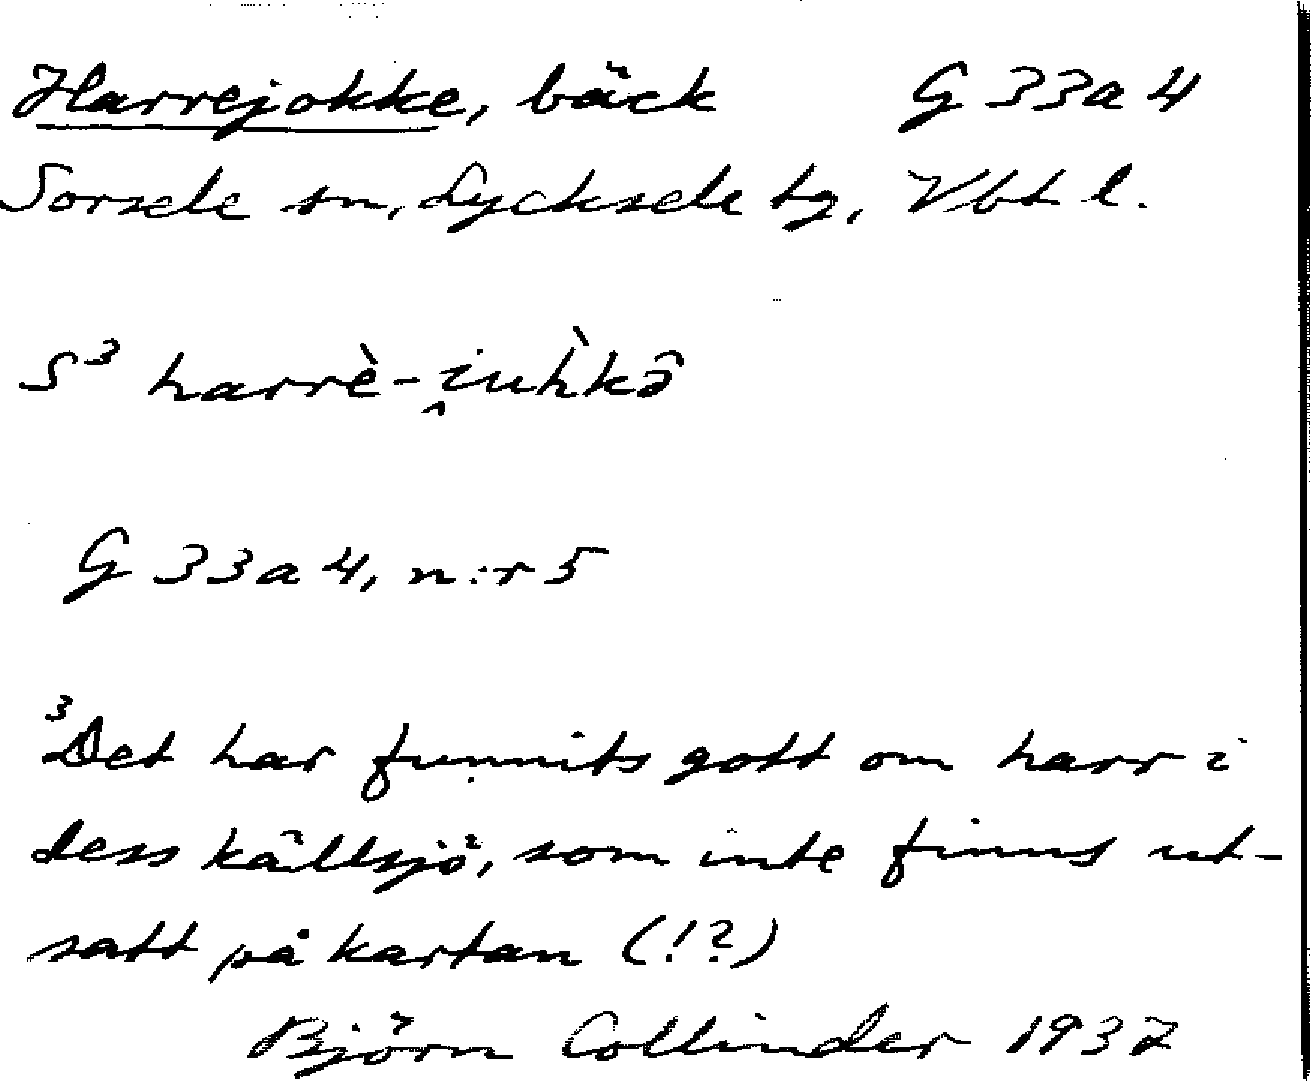 Harrejokke, bäck G 33a 4
Sorsele sn, Lycksele tg, Vbt l.
S³ harrè-i̯uh̀kə̑
G 33a 4, n:r 5
³Det har funnits gott om harr i
dess källsjö, som inte finns ut-
satt på kartan (!?)
Björn Collinder 1937